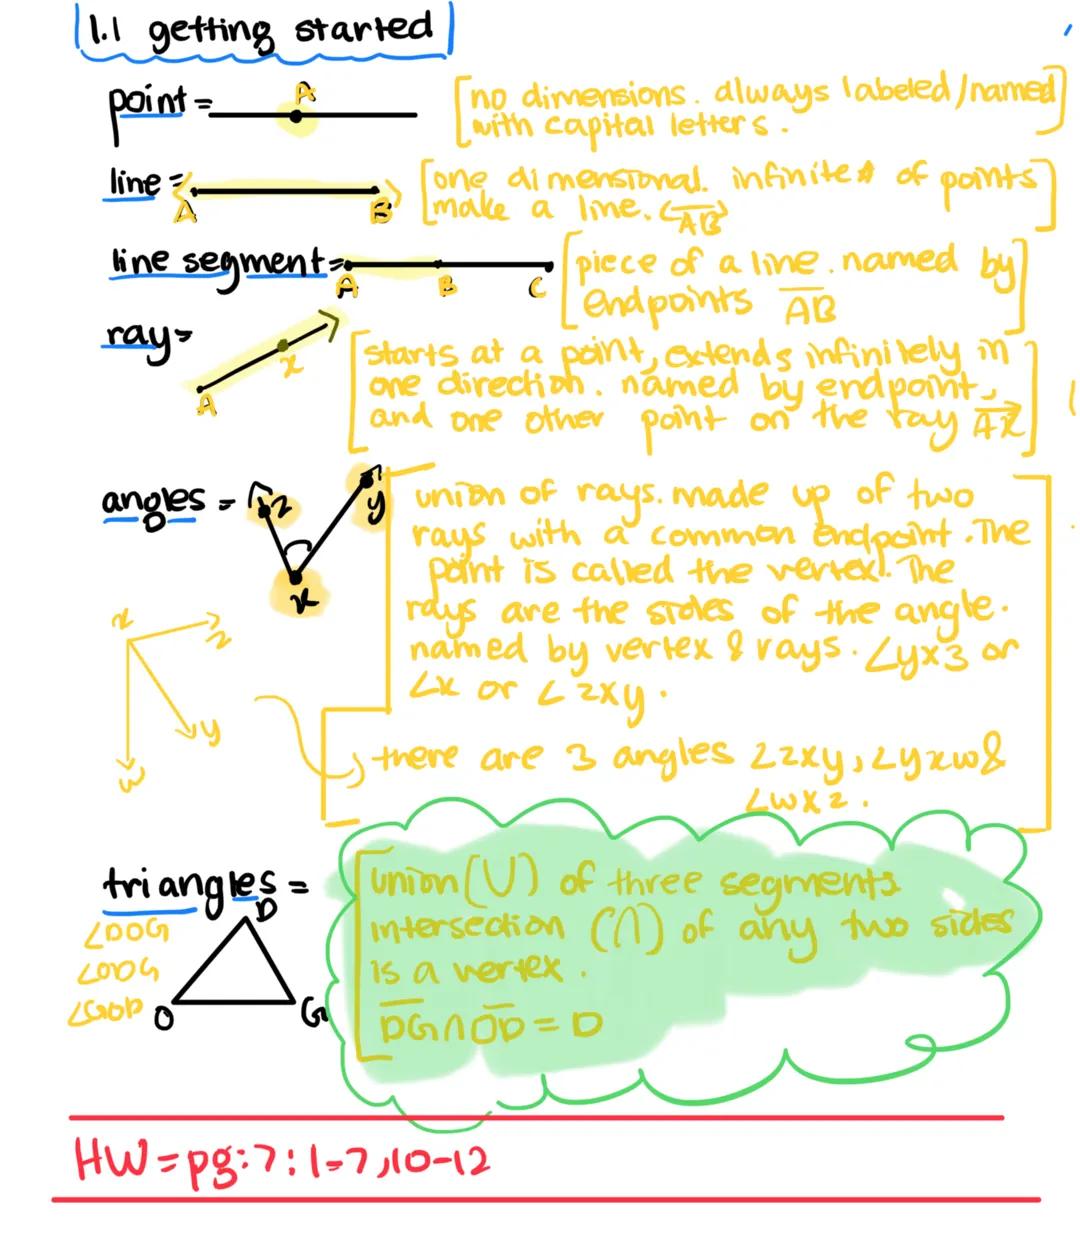 1.1 getting started
point=
A
[no dimensions. always labeled/named
with capital letters.]
line=
A B
[one dimensional. infinite # of points
make a line. AB]
line segment=
A B C
[piece of a line. named by
endpoints AB]
ray=
A x
[starts at a point, extends infinitely in
one direction. named by endpoint,
and one other point on the ray AX]
angles =
z y
x
union of rays. made up of two
rays with a common endpoint. The
point is called the vertex. The
rays are the sides of the angle.
named by vertex & rays. ∠yxz or
∠x or ∠zxy.
x
z
y
w
there are 3 angles ∠zxy, ∠yxw &
∠wxz.
triangles =
D
O G
∠DOG
∠ODG
∠GOD
union (U) of three segments
intersection (∩) of any two sides
is a vertex.
DG∩OD = D
HW=pg:7:1-7,10-12